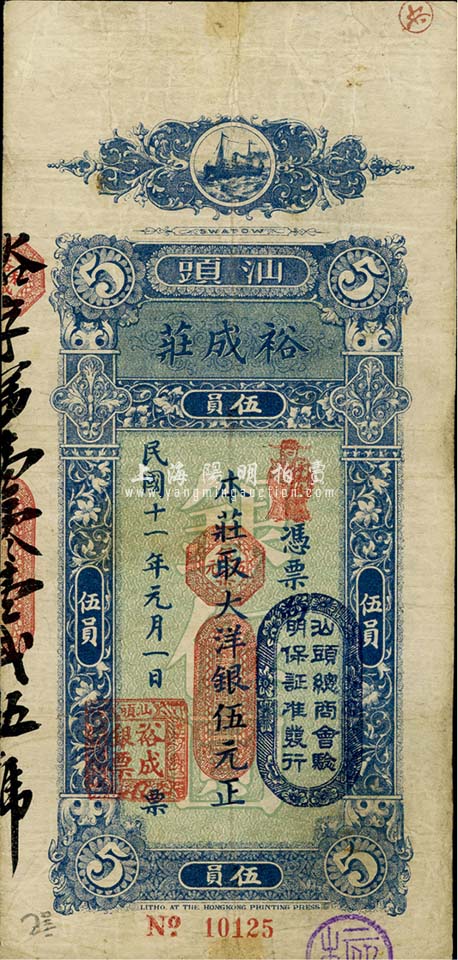 SWATOW
汕頭
5 5
裕成莊
伍員
憑票
本莊取大洋銀伍元正
民國十一年元月一日
票
伍員
伍員
汕頭總商會驗明保証准發行
汕頭
裕成
銀票
上海陽明拍賣
www.yangmingauction.com
5 5
伍員
LITHO. AT THE HONGKONG PRINTING PRESS
№ 10125